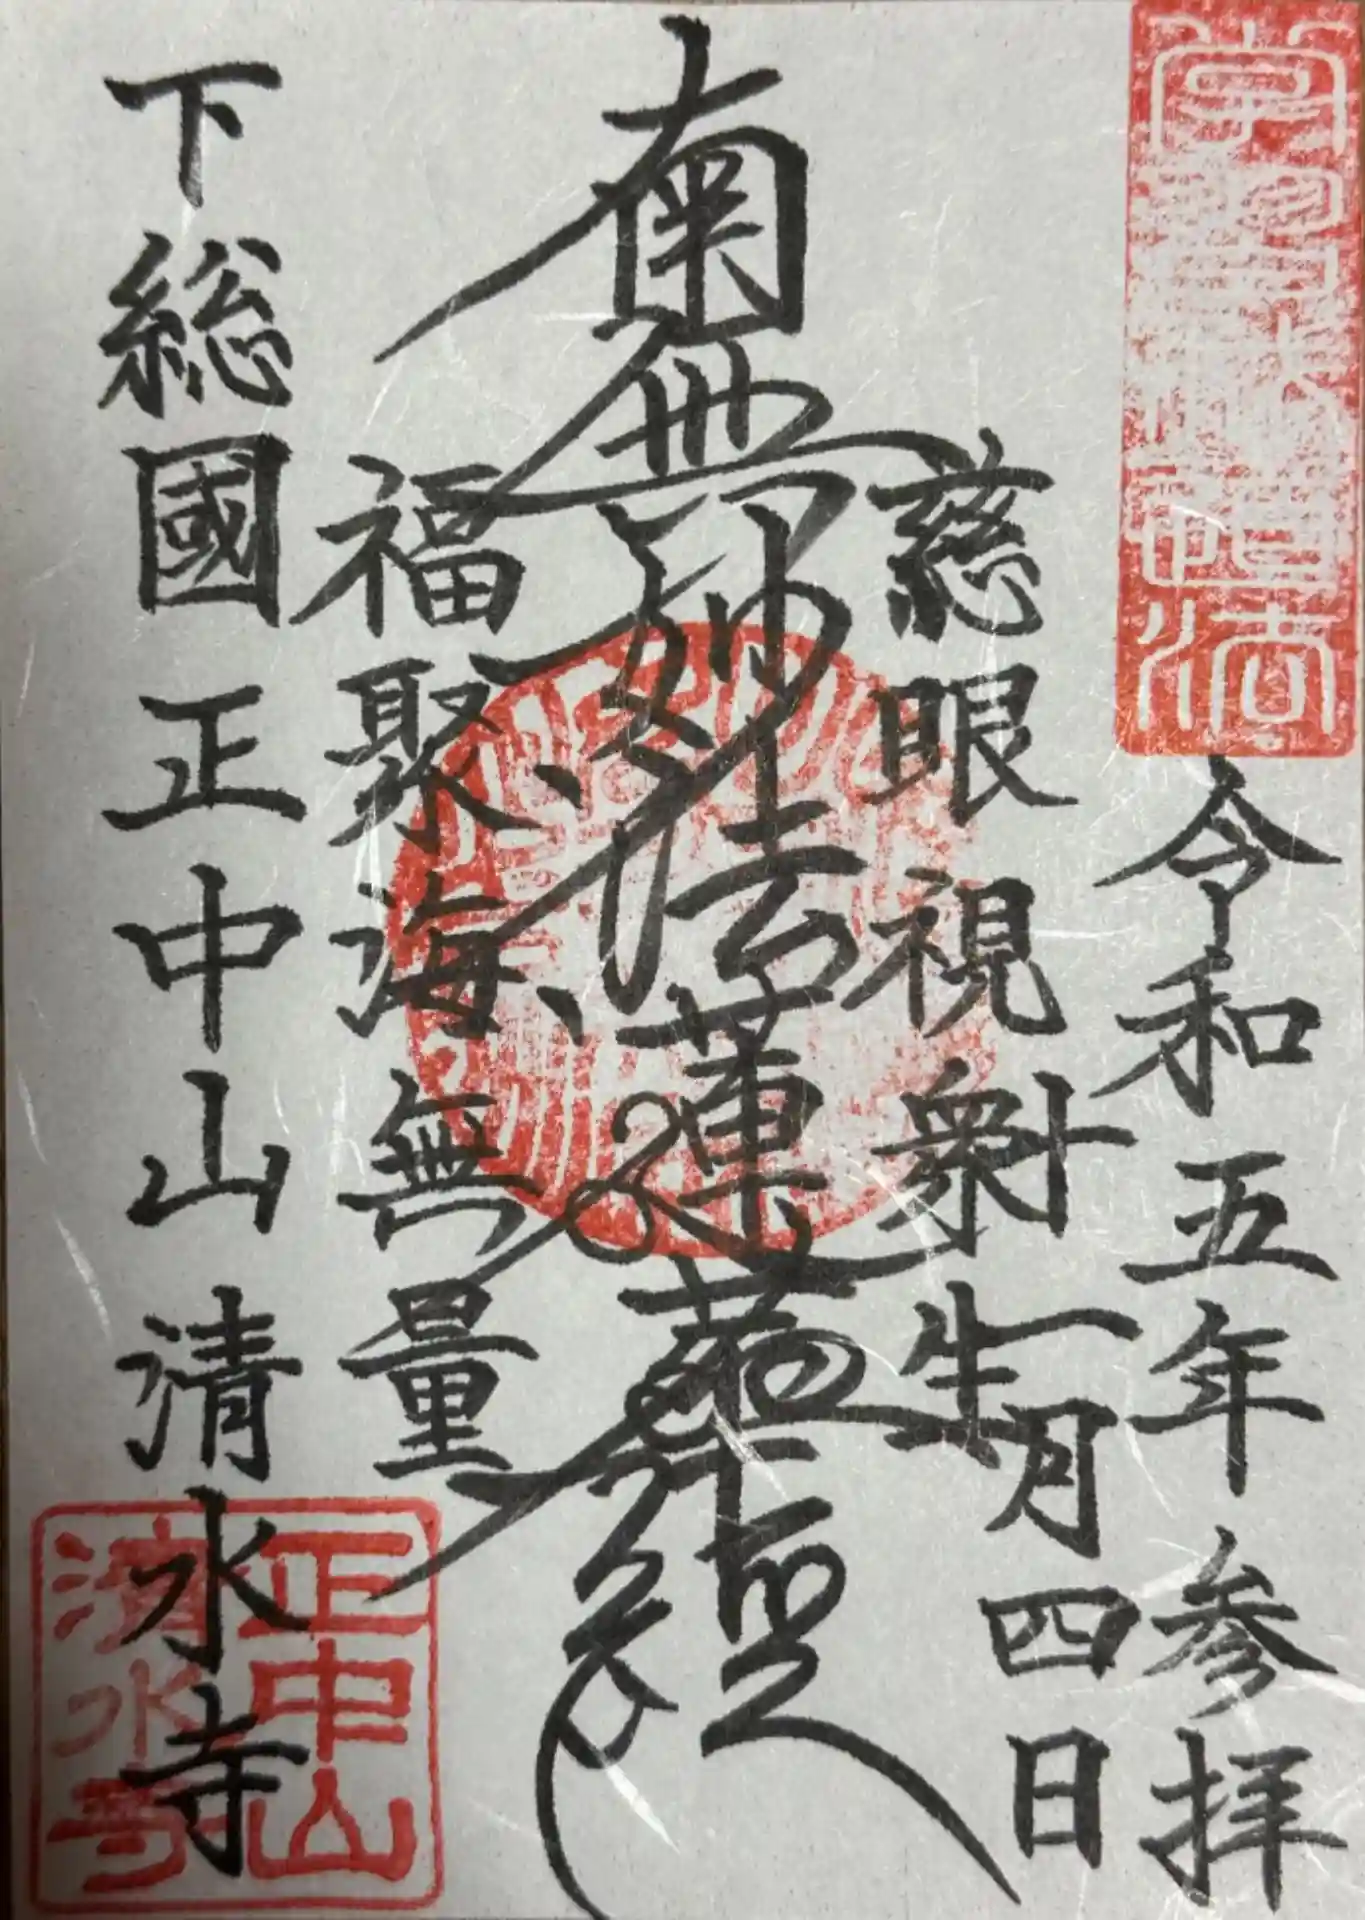 令和五年参拝
十一月四日
慈眼視衆生
南無妙法蓮華経
福聚海無量
下総國正中山清水寺
正中山
清水寺